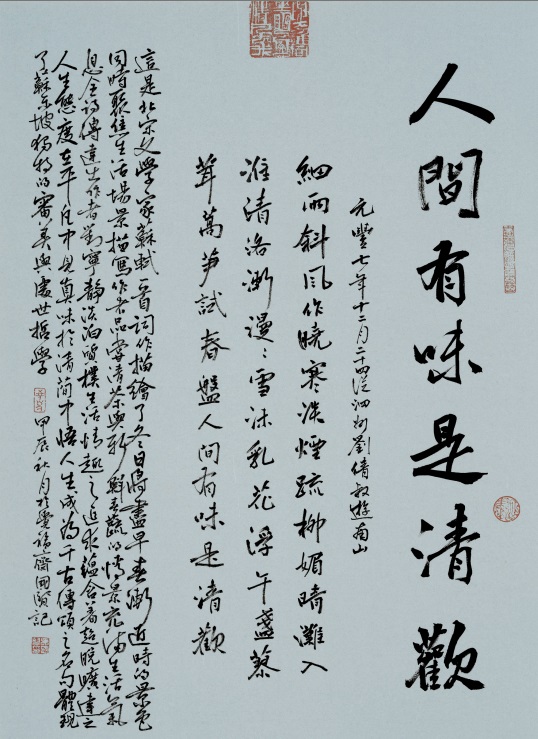 人間有味是清歡
元豐七年十二月二十四從泗州劉倩叔遊南山
細雨斜風作曉寒淡煙疏柳媚晴灘入
淮清洛漸漫〻雪沫乳花浮午盞蓼
茸蒿笋試春盤人间有味是清歡
這是北宋文學家蘇軾一首詞作描繪了冬日將盡早春漸近時的景色
同時聚焦生活場景描寫作者品嘗清茶與新鮮春蔬的情景充滿生活氣
息全詞傳達出作者對寧靜淡泊質樸生活情趣之追求蘊含着超脫曠達之
人生態度在平凡中見真味於清簡中悟人生成為千古傳頌之名句體現
了蘇東坡獨特的審美與處世哲學 甲辰秋月於齋國賢記